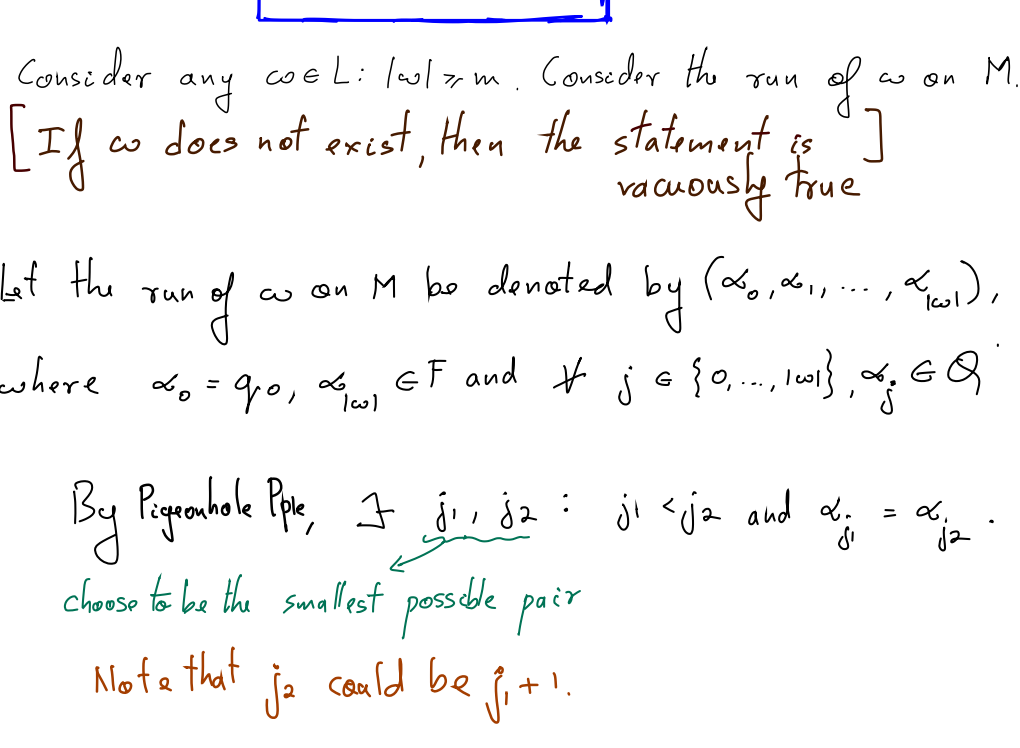 Consider any ω ∈ L: |ω| ⩾ m. Consider the run of ω on M.
[If ω does not exist, then the statement is]
vacuously true
Let the run of ω on M be denoted by (α₀, α₁, ..., α_|ω|),
where α₀ = q₀, α_|ω| ∈ F and ∀ j ∈ {0, ..., |ω|}, α_j ∈ Q
By Pigeonhole Pple, ∃ j₁, j₂ : j₁ < j₂ and α_j₁ = α_j₂.
choose to be the smallest possible pair
Note that j₂ could be j₁ + 1.